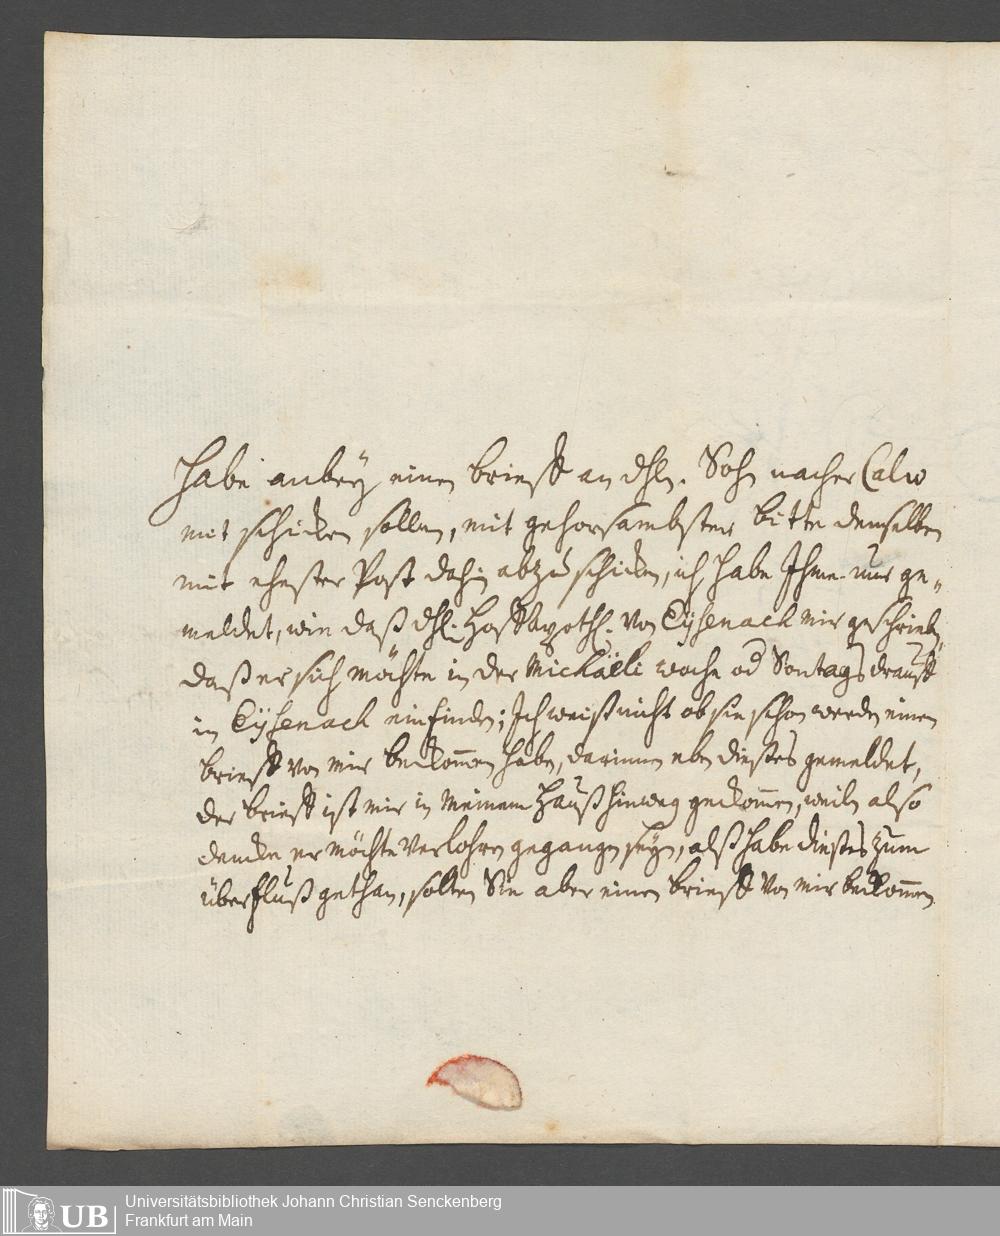 Habe anbey einen brieff an dhln. Sohn nacher Calw
mit schicken sollen, mit gehorsambster bitte denselben
mit ehester Post dahin abzuschicken, ich habe Ihme nur ge-
meldet, wie daß dhl. Hoffapoth. von Eysenach mir geschrieben,
daß er sich möchte in der Michaeli woche od Sontags drauff
in Eysenach einfinden; Ich weiß nicht ob sie schon werden einen
brieff von mir bekommen haben, darinnen eben dießes gemeldet,
der brieff ist mir in meinem Hauß hinweg gekommen, weiln also
dencke er möchte verlohren gegangen seyn, alß habe dießes zum
überfluß gethan, solten Sie aber einen brieff von mir bekommen
UB
Universitätsbibliothek Johann Christian Senckenberg
Frankfurt am Main